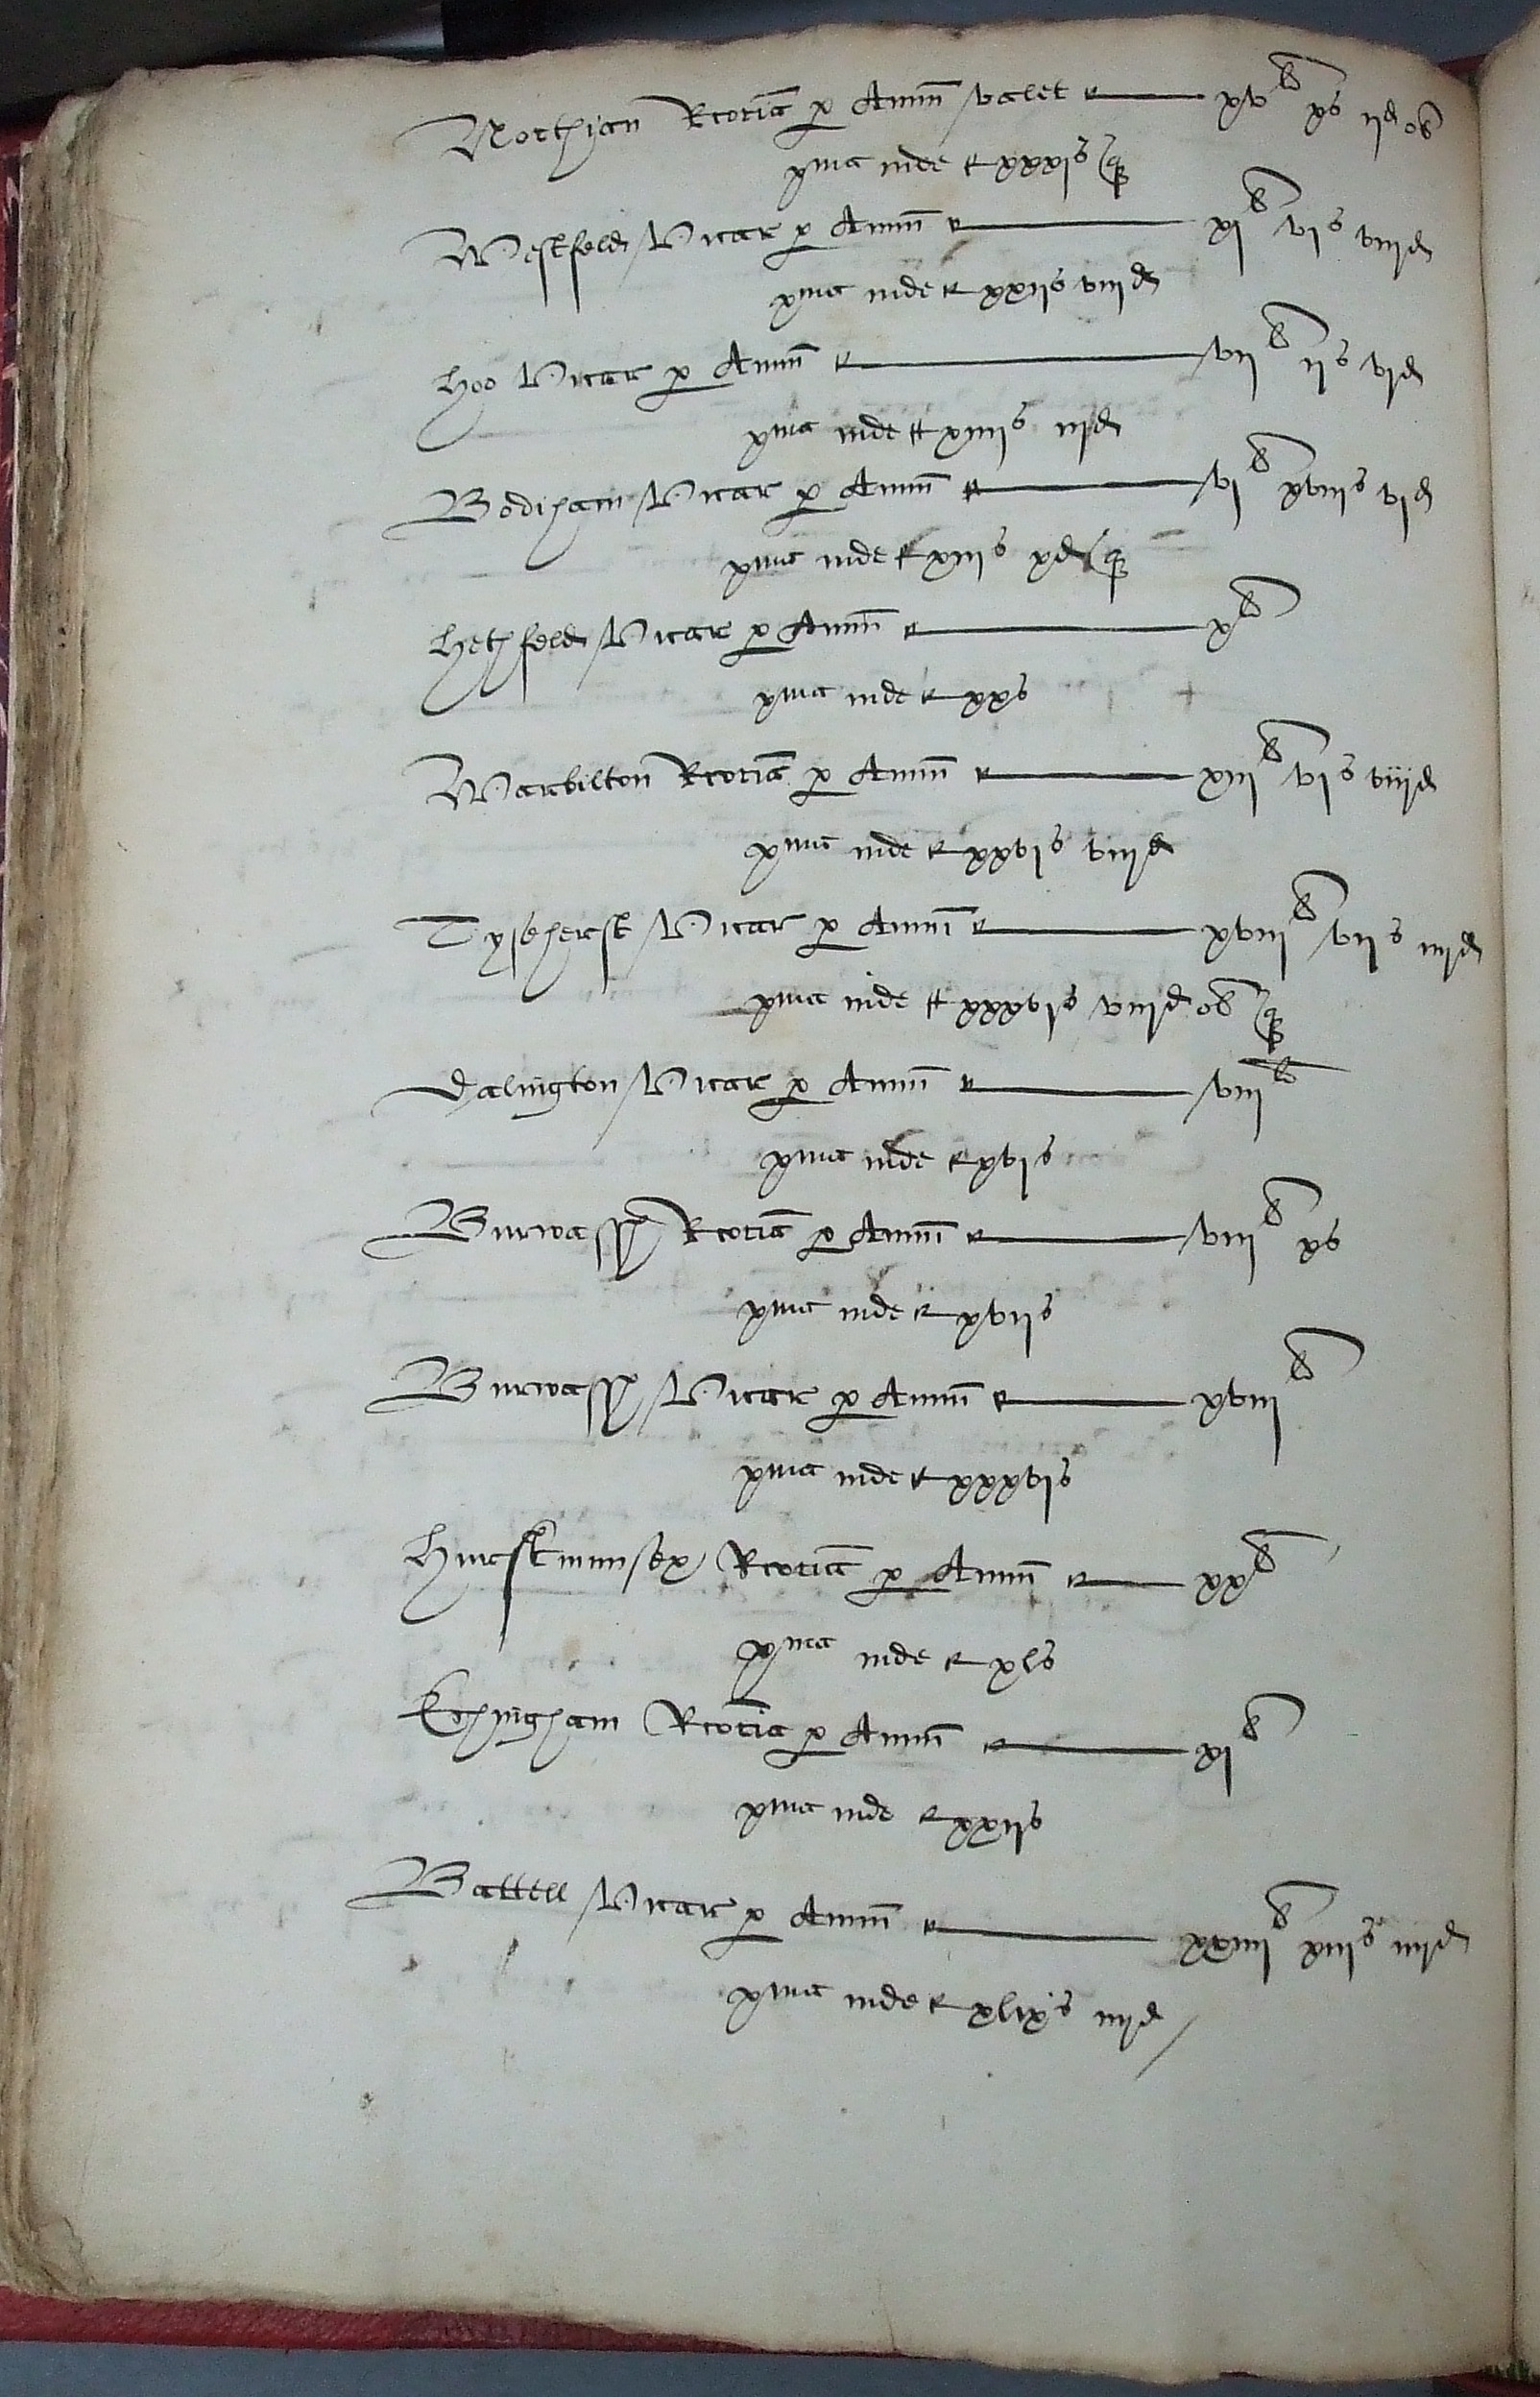 Northian Rcoria p Annu valet xv li xs iid ob
xma inde xxxis q
Westfeld Vicar p Annu xi li vis viiid
xma inde xxiis viiid
Hoo Vicar p Annu vii li iis vid
xma inde xiiiis iiid
Bodiham Vicar p Annu vi li xviiis vid
xma inde xiiis xd q
Hethfeld Vicar p Annu x li
xma inde xxs
Warbilton Rcoria p Annu xiii li vis viiid
xma inde xxvis viiid
Tyseherst Vicar p Annu xviii li viis iiid
xma inde xxxvis viiid ob q
Dalington Vicar p Annu viii li
xma inde xvis
Burwassh Rcoria p Annu viii li xs
xma inde xviis
Burwassh Vicar p Annu xviii li
xma inde xxxvis
Hurstmunsex Rcoria p Annu xx li
xma inde xls
Echingham Rcoria p Annu xi li
xma inde xxiis
Battell Vicar p Annu xxiiii li xiiis iiiid
xma inde xlixs iiiid